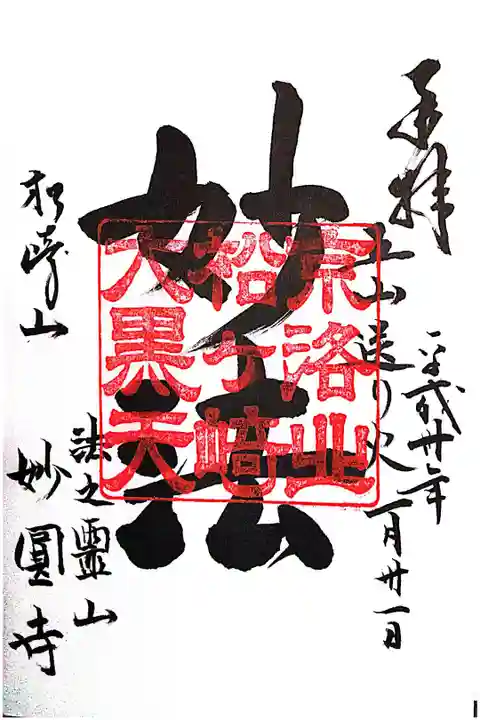 奉拝
五山送り火
平成廿二年
一月廿一日
妙法
京洛山
松ヶ崎
大黒天
松崎山
法之靈山
妙圓寺